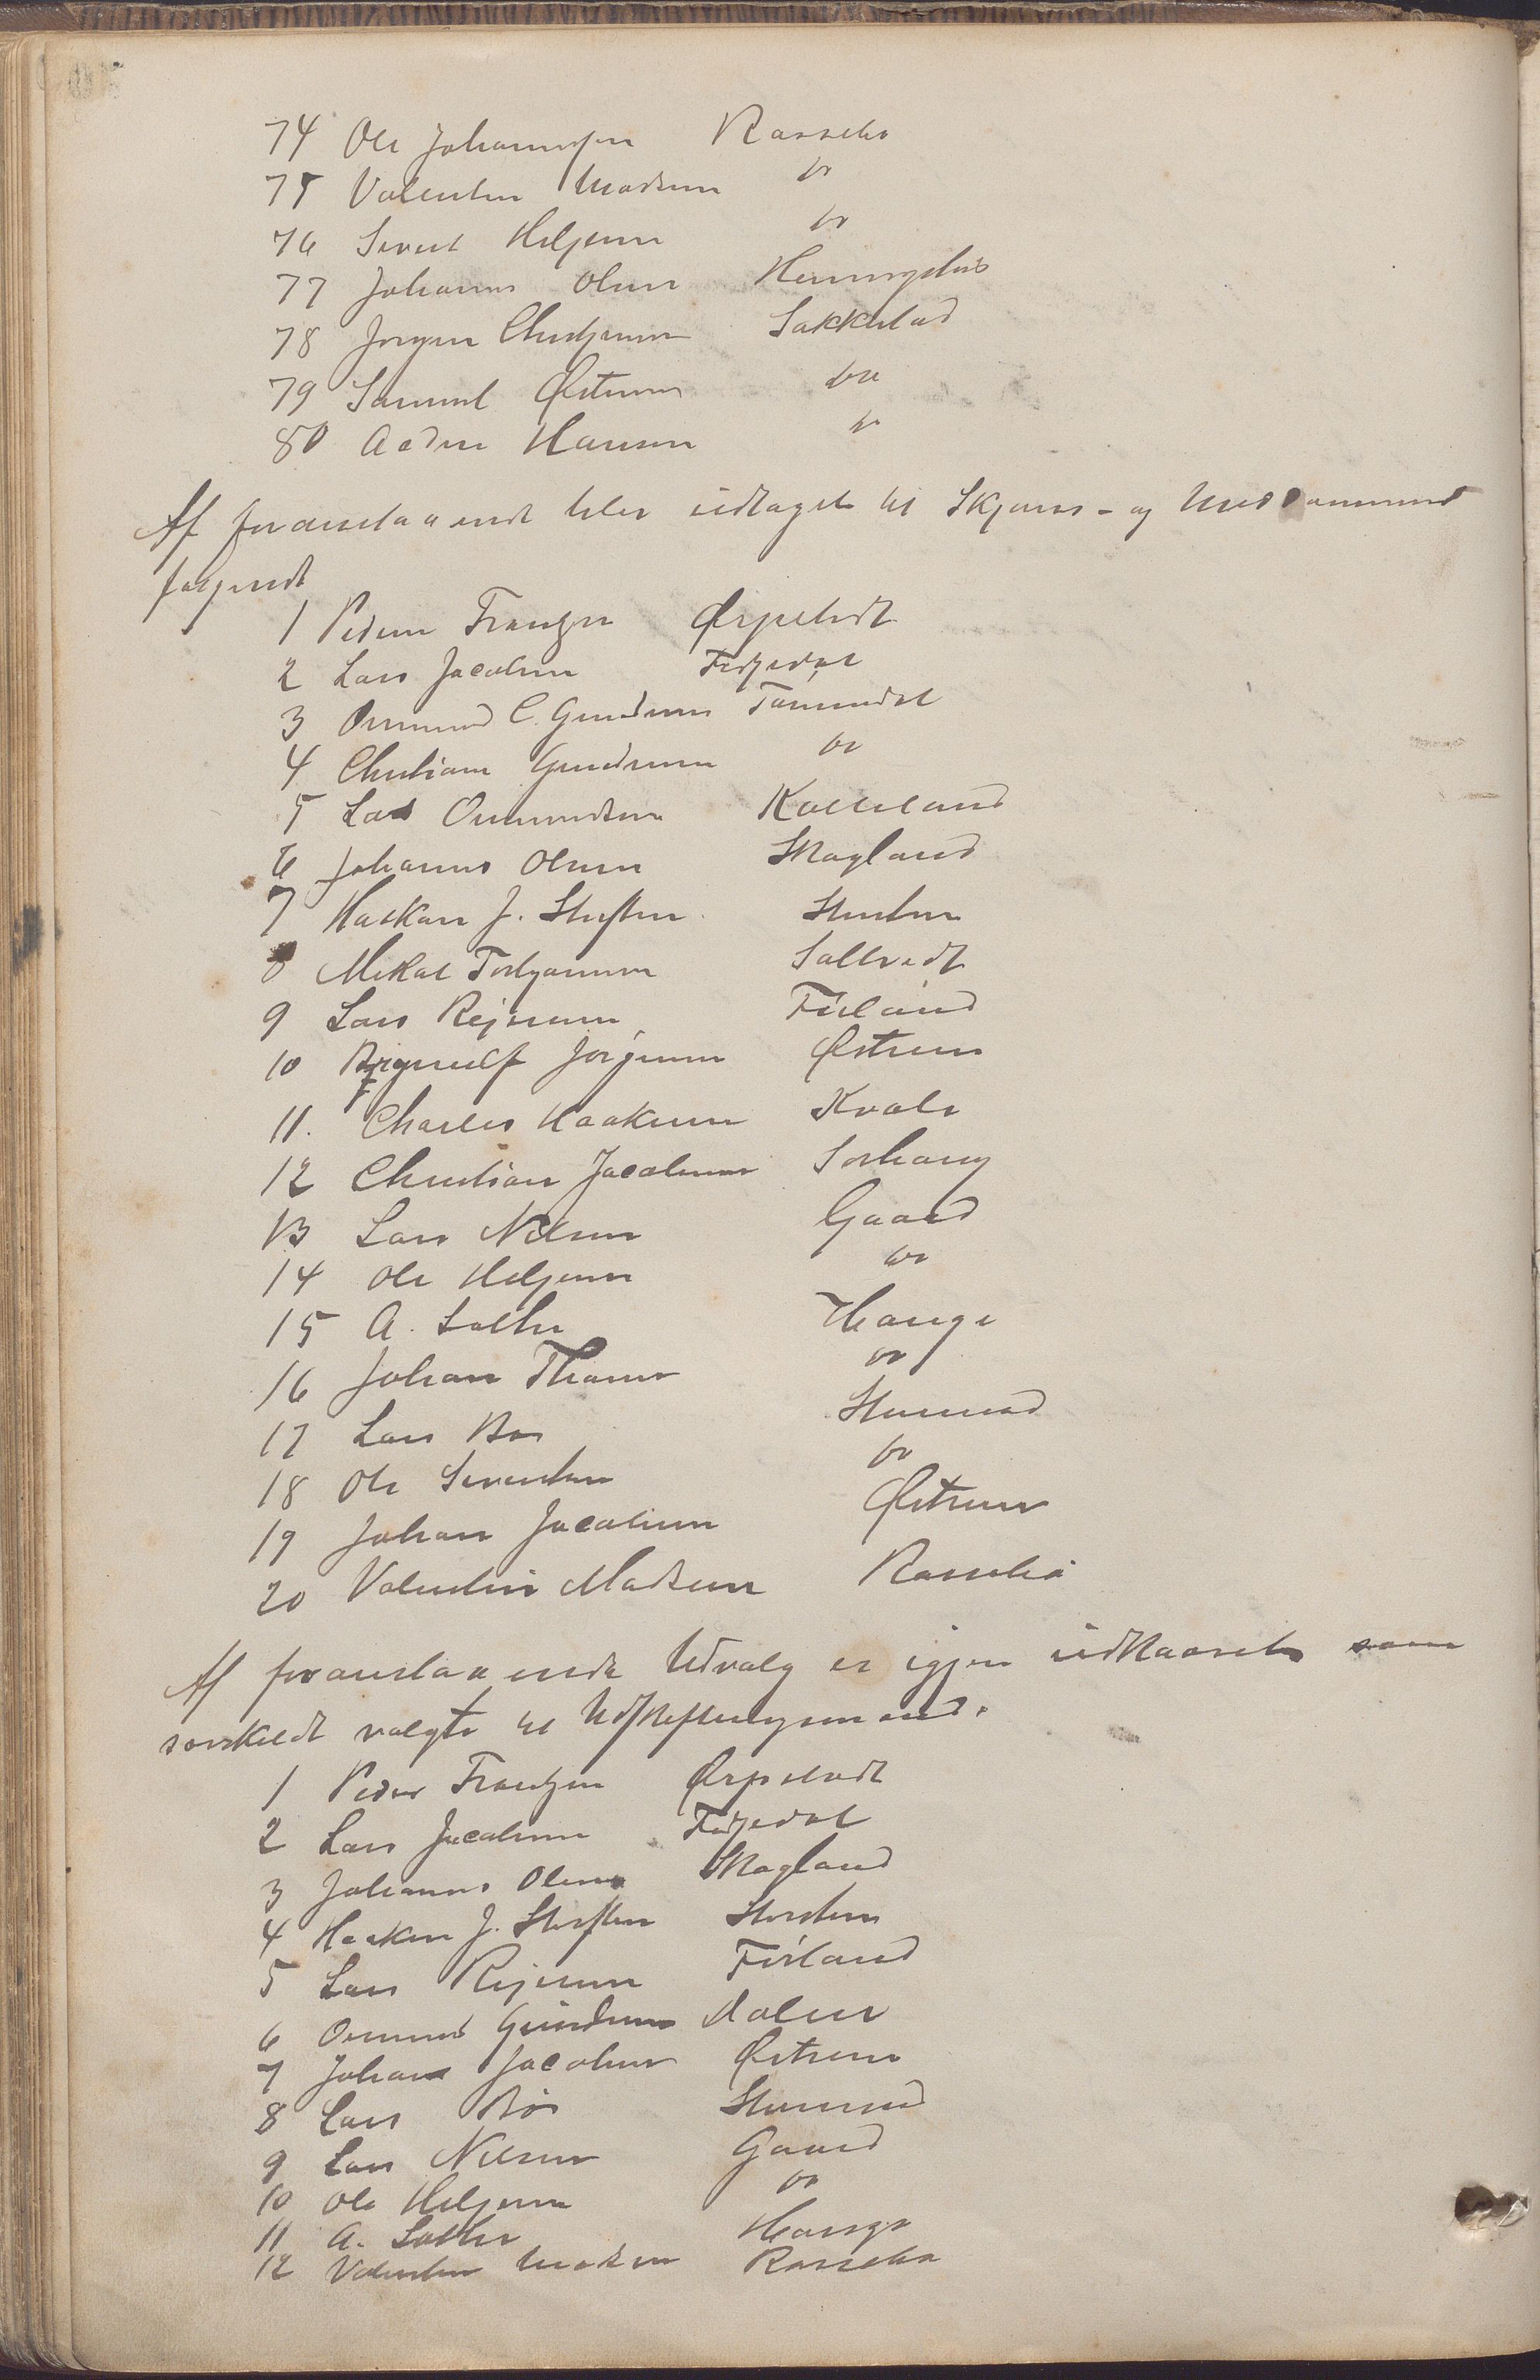 74 Ole Johannesen Rossebø
75 Valentin Madsen do
76 Sivert Helgesen do
77 Johannes Olsen Hemmingstad
78 Jørgen Christensen Sakkestad
79 Samuel Østrem do
80 Aadne Hansen do
Af foranstaaende blev udtaget til Skjøns- og Meddommend
følgende
1 Peder Frantzen Ørpetvedt
2 Lars Jacobsen Fidjedal
3 Osmund C. Gundersen
4 Christian Gundersen do
5 Lars Osmundsen Kalleland
6 Johannes Olsen Skogland
7 Haakon J. Steensen
8 Mikal Torbjørnsen Saltvedt
9 Lars Rejersen Førland
10 Brynulf Jørgensen Østrem
11. Charles Haakonsen Kvale
12 Christian Jacobsen Sørhaug
13 Lars Nilsen Gaard
14 Ole Helgesen do
15 A. Sæther Hauge
16 Johan Thomsen do
17 Lars Bø Stemnestad
18 Ole Sivertsen do
19 Johan Jacobsen Østrem
20 Valentin Madsen Rossebø
Af foranstaaende Udvalg er igjen udkaaret som
særskildt valgte til Udskiftningsmænd.
1 Peder Frantzen Ørpetvedt
2 Lars Jacobsen Fidjedal
3 Johannes Olsen Skogland
4 Haakon J. Steensen
5 Lars Rejersen Førland
6 Osmund Gundersen Dalen
7 Johan Jacobsen Østrem
8 Lars Bø Stemnestad
9 Lars Nilsen Gaard
10 Ole Helgesen do
11 A. Sæther Hauge
12 Valentin Madsen Rossebø